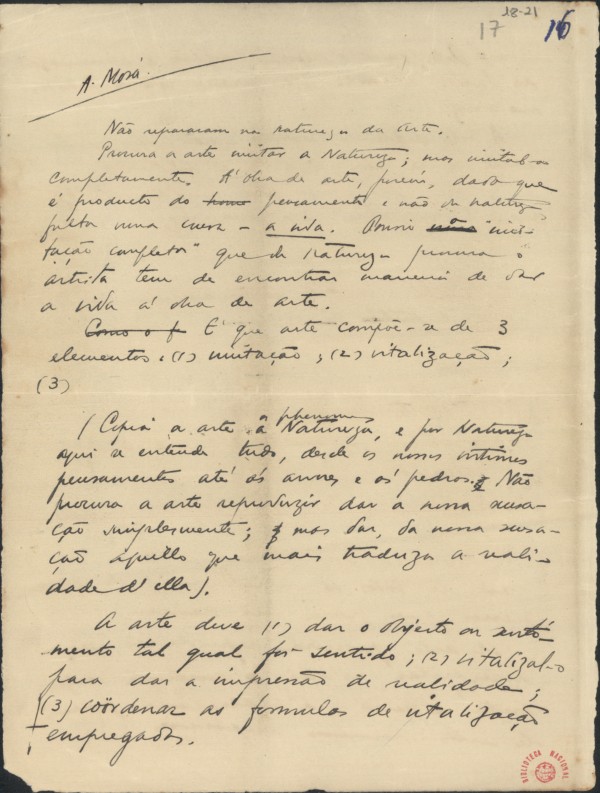 18-21
17
16
A. Mora.
Não repararam na natureza da arte.
Procura a arte imitar a Natureza; mas imital-a
completamente. Á obra de arte, porém, dado que
é producto do pensamento e não da natureza
falta uma cousa — a vida. "imi-
tação completa" que da Natureza procura o
artista tem de encontrar maneira de dar
a vida á obra de arte.
Como o f É que arte compõe-se de 3
elementos: (1) imitação; (2) vitalização;
(3)
a phenom
(Copia a arte a Natureza, e por Natureza
aqui se entende tudo, desde os nossos intimos
pensamentos até ás arvores e ás pedras. Não
procura a arte reproduzir dar a nossa sensa-
ção simplesmente; mas dar, da nossa sensa-
ção aquillo que mais traduza a reali-
dade d'ella).
A arte deve (1) dar o objecto ou senti-
mento tal qual foi sentido; (2) vitalizal-o
para dar a impressão de realidade;
(3) coördenar as formulas de vitalização
empregadas.
BIBLIOTECA NACIONAL